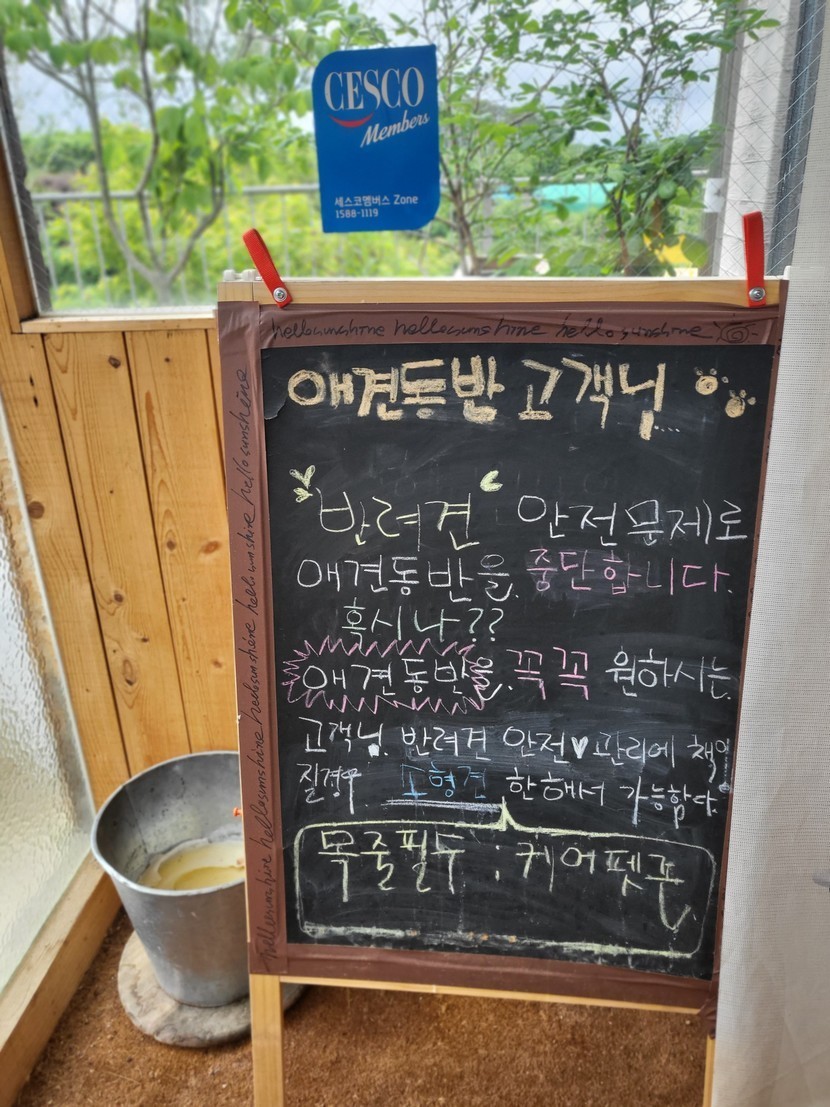 CESCO
Members
세스코멤버스 Zone
1588-1119
hellosunshine hellosunshine hello sunshine
hellosunshine hellosunshine hellosunshine hellosunshine hellosunshine hello sunshine
애견동반 고객님....
"반려견" 안전문제로
애견동반을. 중단합니다.
혹시나??
애견동반을. 꼭꼭 원하시는.
고객님. 반려견 안전♥관리에 책임
질경우 소형견 한해서 가능합니다.
목줄필수 : 케어펫존